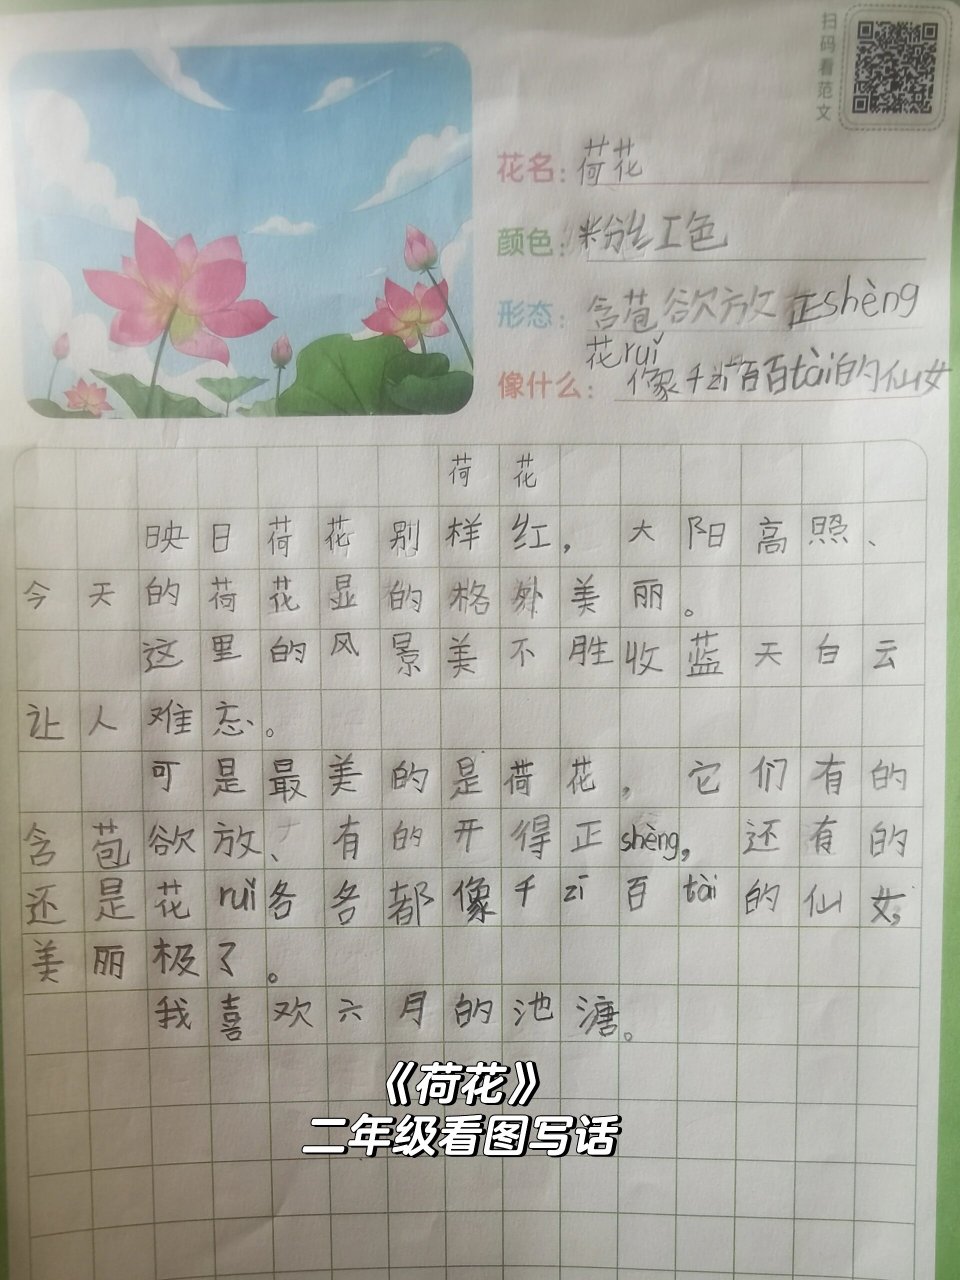 扫码看范文
花名：荷花
颜色：粉红色
形态：含苞欲放 正shèng
花ruǐ
像什么：像千zī百tài的仙女
荷花
映日荷花别样红，大阳高照、
今天的荷花显的格外美丽。
这里的风景美不胜收蓝天白云
让人难忘。
可是最美的是荷花，它们有的
含苞欲放、有的开得正shèng，还有的
还是花ruǐ各各都像千zī百tài的仙女，
美丽极了。
我喜欢六月的池溏。
《荷花》
二年级看图写话